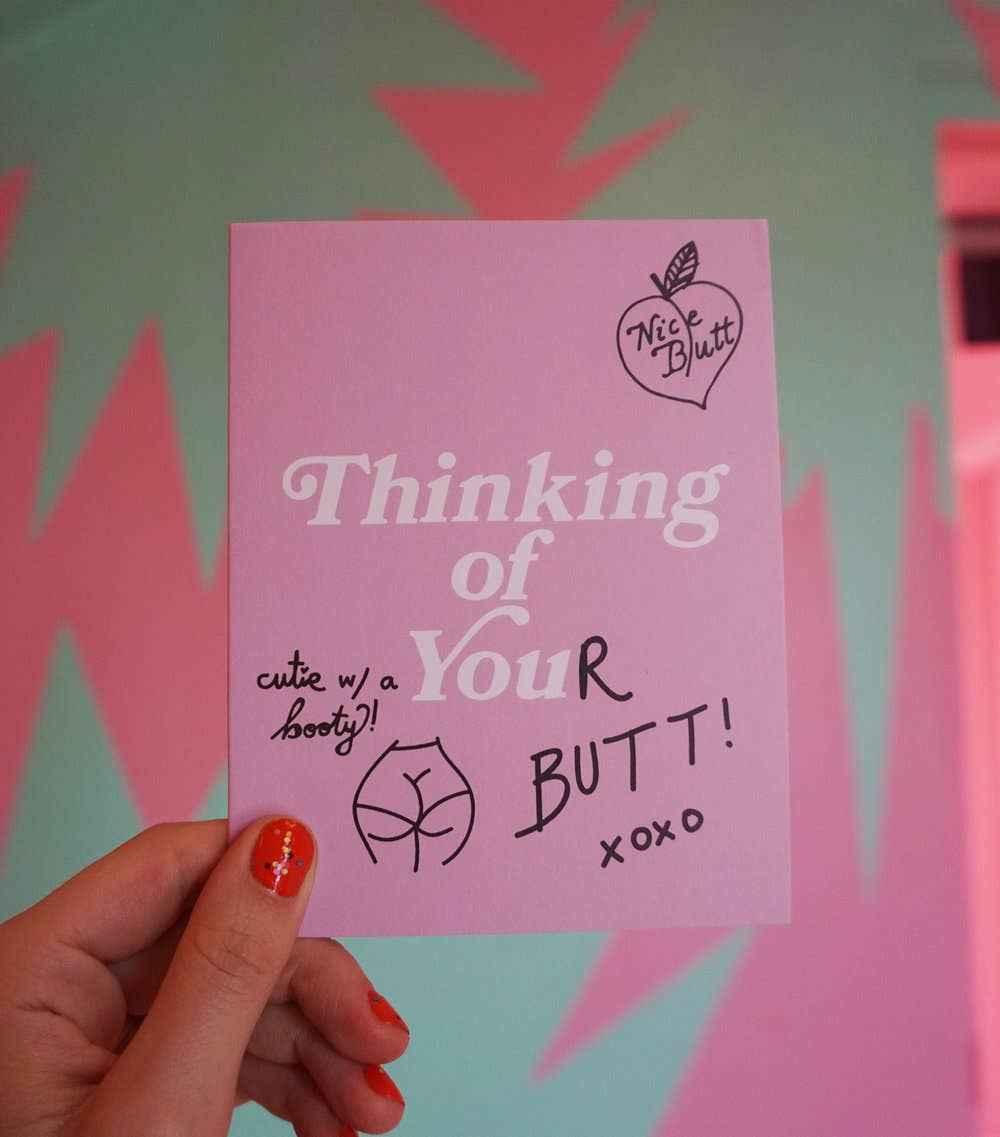 Nice
Butt
Thinking
of
YouR
cutie w/ a
booty!
BUTT!
xoxo